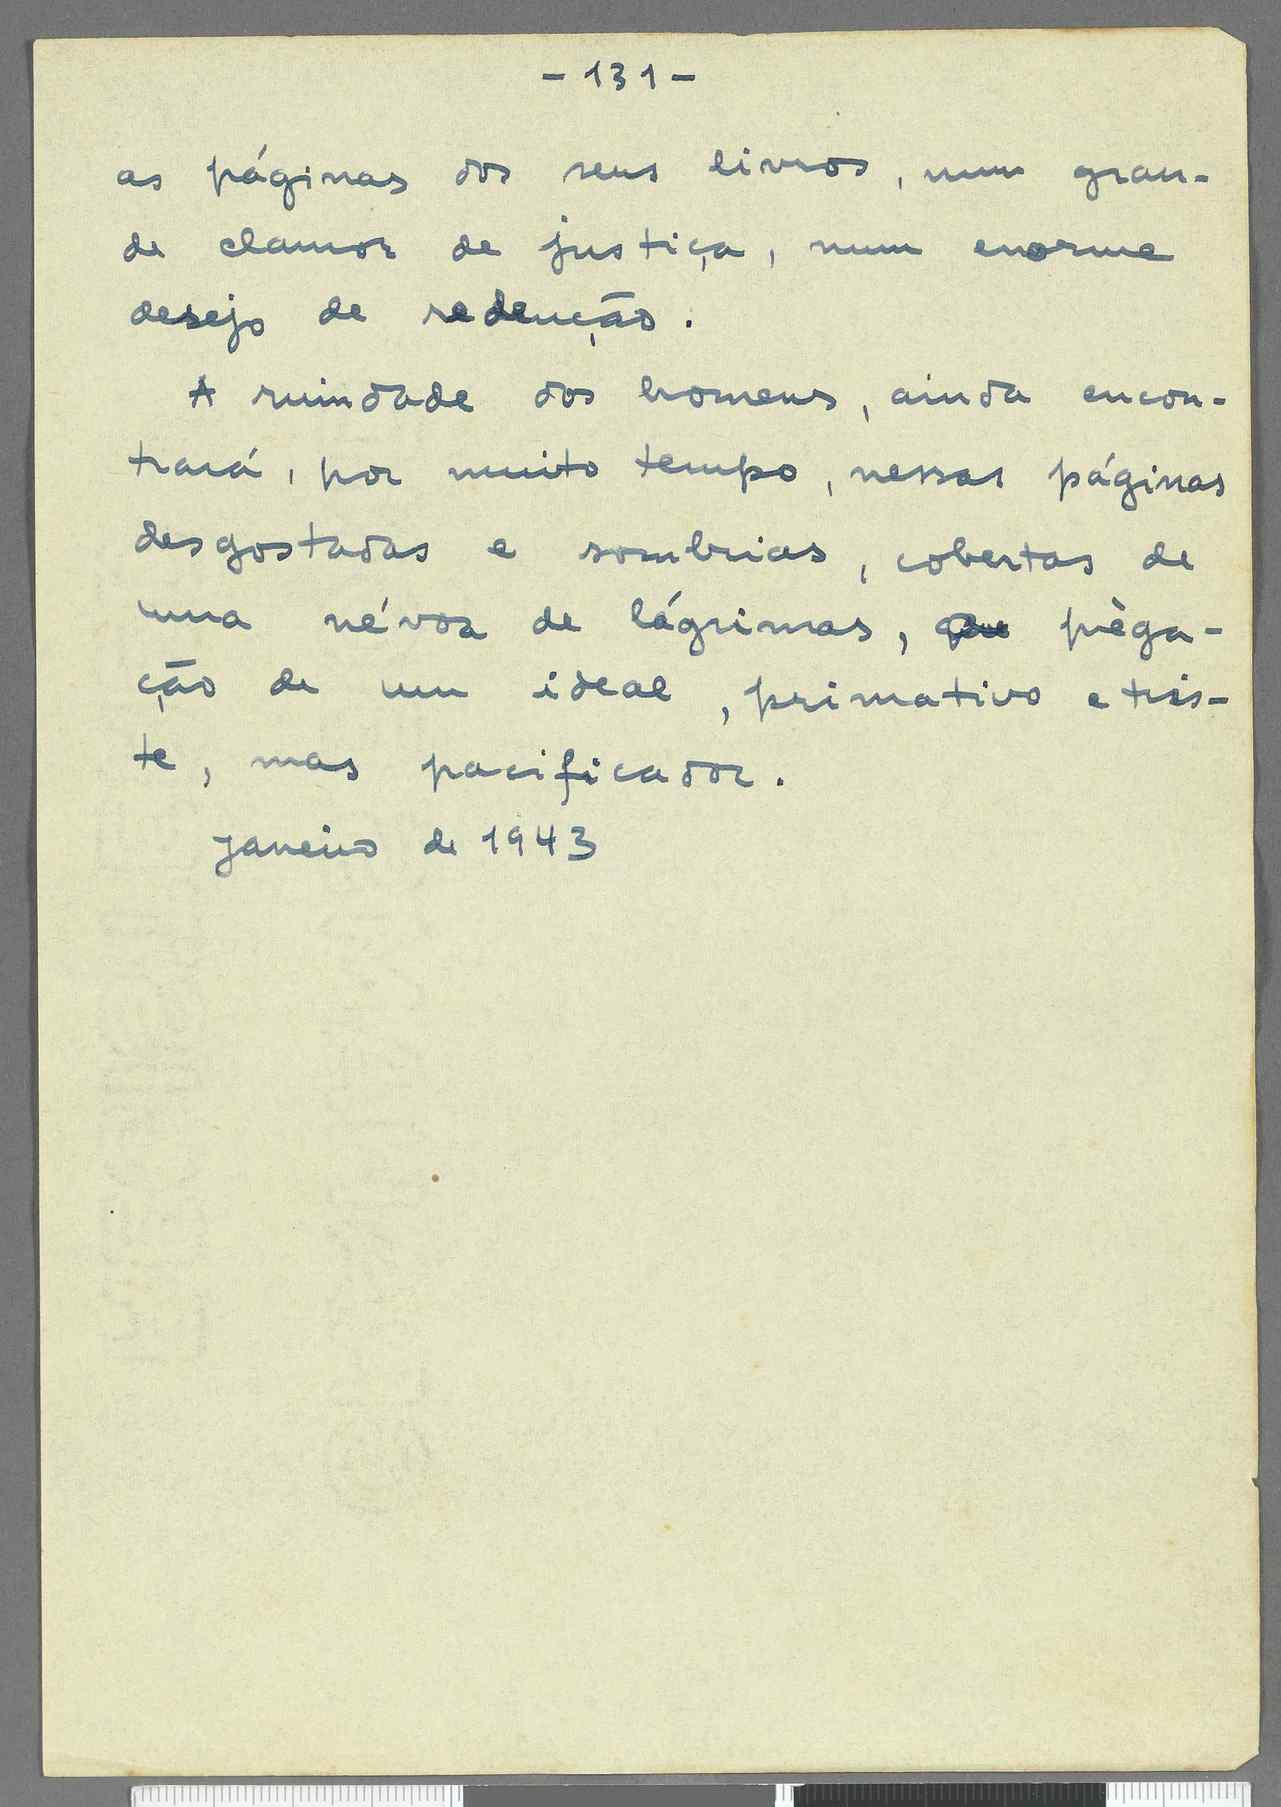 - 131 -
as páginas dos seus livros, num gran-
de clamor de justiça, num enorme
desejo de redenção.
A ruindade dos homens, ainda encon-
trará, por muito tempo, nessas páginas
desgostadas e sombrias, cobertas de
uma névoa de lágrimas, pèga-
ção de um ideal, primativo e tris-
te, mas pacificador.
Janeiro de 1943